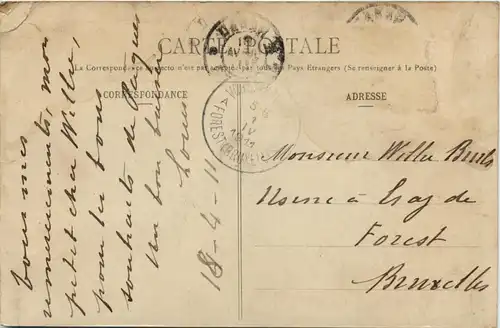 CARTE POSTALE
La Correspondance au recto n'est pas acceptée par tous les Pays Etrangers (Se renseigner à la Poste)
CORRESPONDANCE
ADRESSE
Tous mes
remerciements, mon
petit cher Willie,
pour tes bons
souhaits de Pâques
Un bon baiser
Louis
18-4-11
Monsieur Willie
Usine à Gaz de
Forest
Bruxelles
FOREST
IV
1911